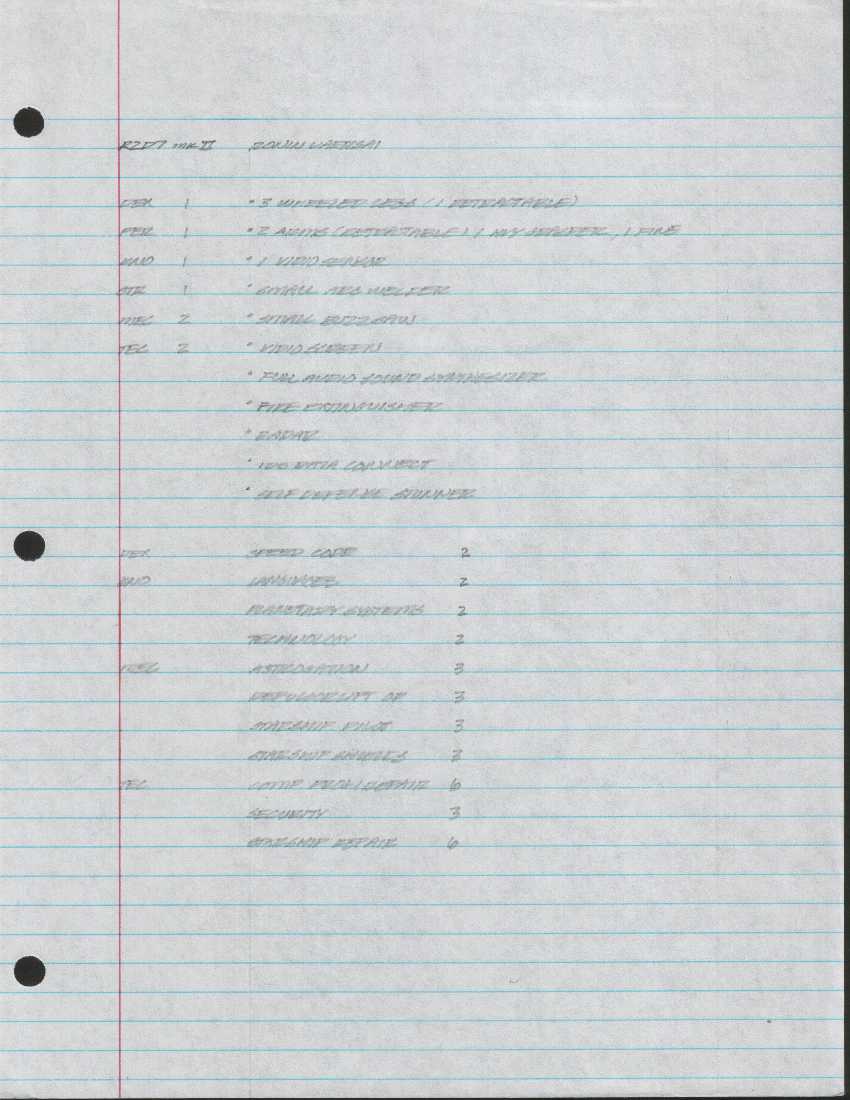 R2D7 mk II RONIN
DEX 1 • 3 WHEELED LEGS (1 RETRACTABLE)
PER 1 • 2 ARMS (RETRACTABLE) 1 HVY GRASPER, 1 FINE
KNO 1 • 1 VIDIO SENSOR
STR 1 • SMALL ARC WELDER
MEC 2 • SMALL BUZZ SAW
TEC 2 • VIDIO SCREEN
• FULL AUDIO SOUND SYNTHESIZER
• FIRE EXTINGUISHER
• RADAR
• DATA CONNECT
• SELF DEFENSE STUNNER
DEX SPEED CODE 2
KNO LANGUAGES 2
PLANETARY SYSTEMS 2
TECHNOLOGY 2
MEC ASTROGATION 3
REPULSORLIFT OP 3
STARSHIP PILOT 3
STARSHIP SHIELDS 3
TEC COMP PROG/REPAIR 6
SECURITY 3
STARSHIP REPAIR 6